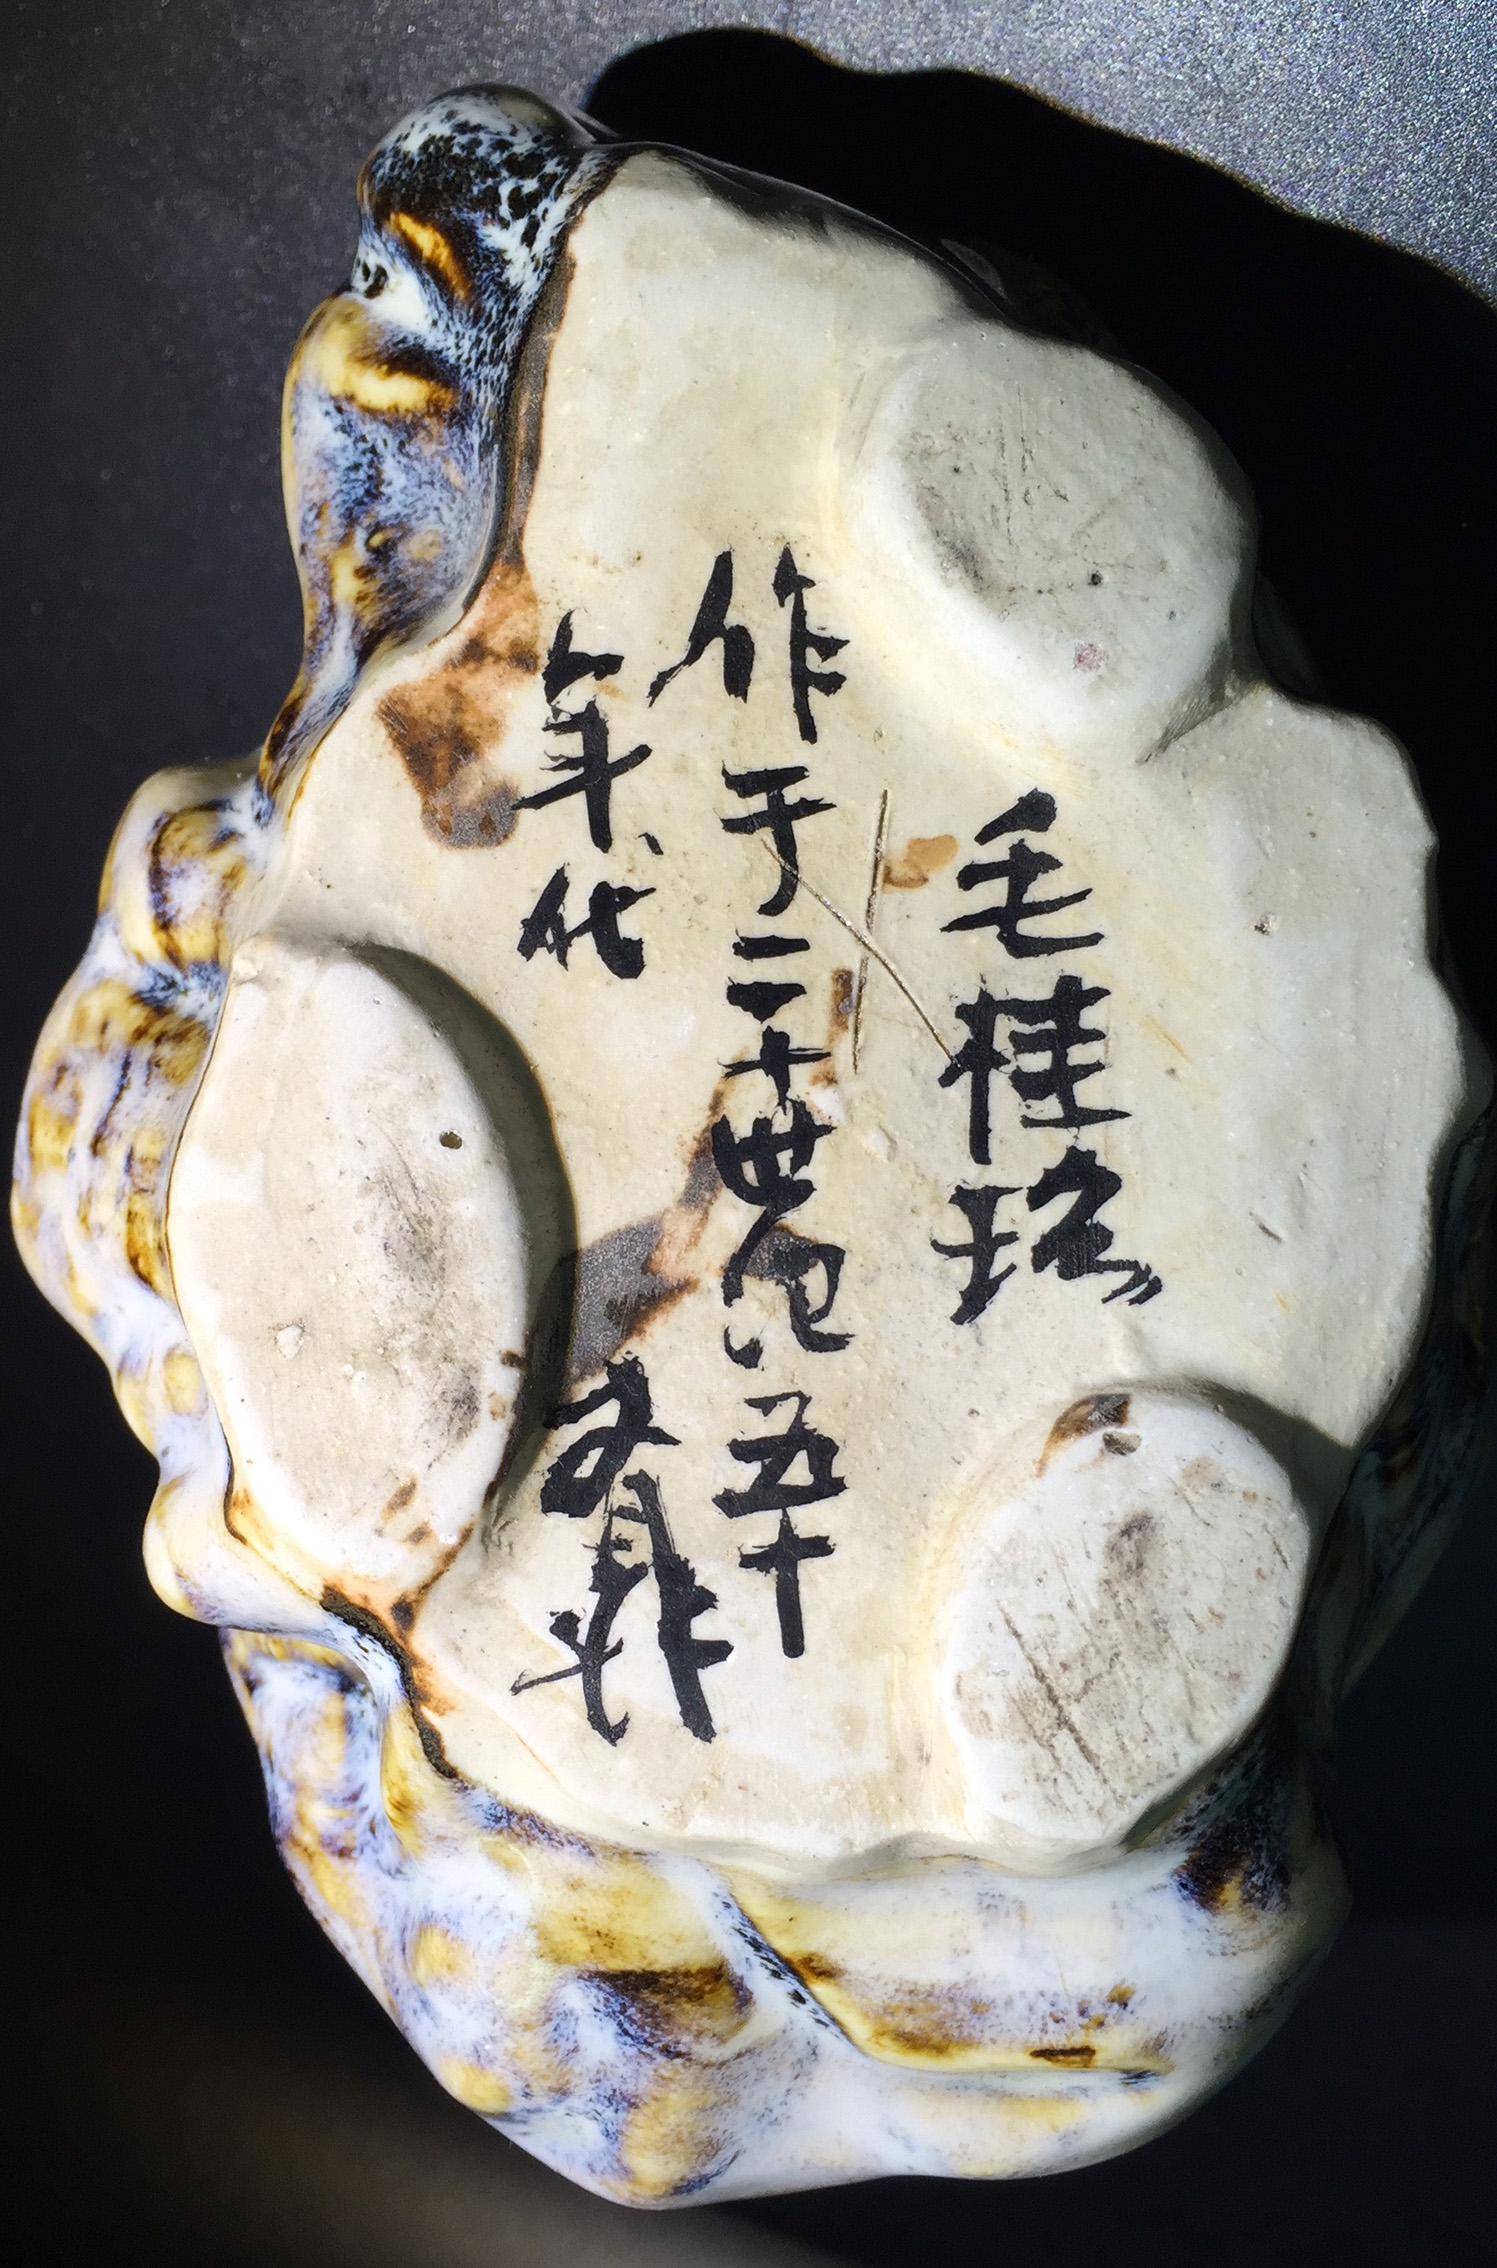 毛桂珍
作于二十世纪五十
年代